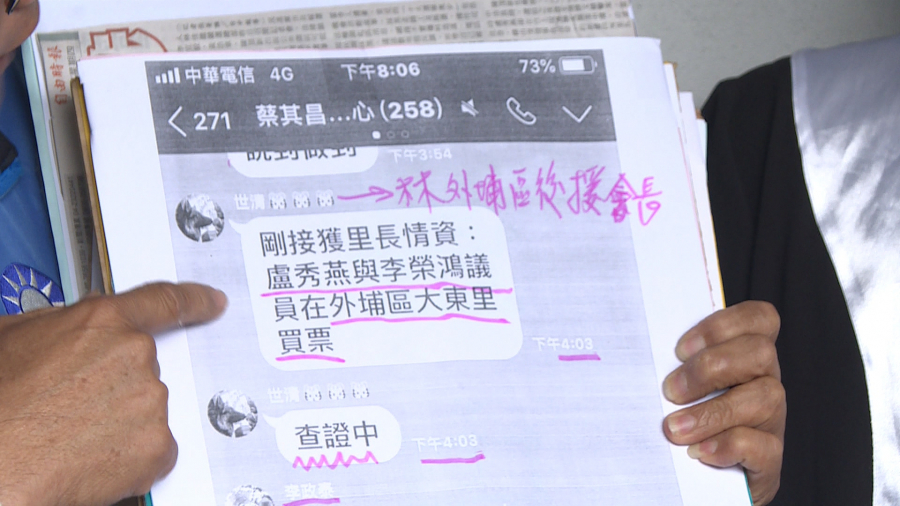 中華電信 4G 下午8:06 73%
271 蔡其昌...心(258)
說到做到
下午3:54
世濱 →林外埔區後援會長
剛接獲里長情資：
盧秀燕與李榮鴻議
員在外埔區大東里
買票
下午4:03
世濱
查證中
下午4:03